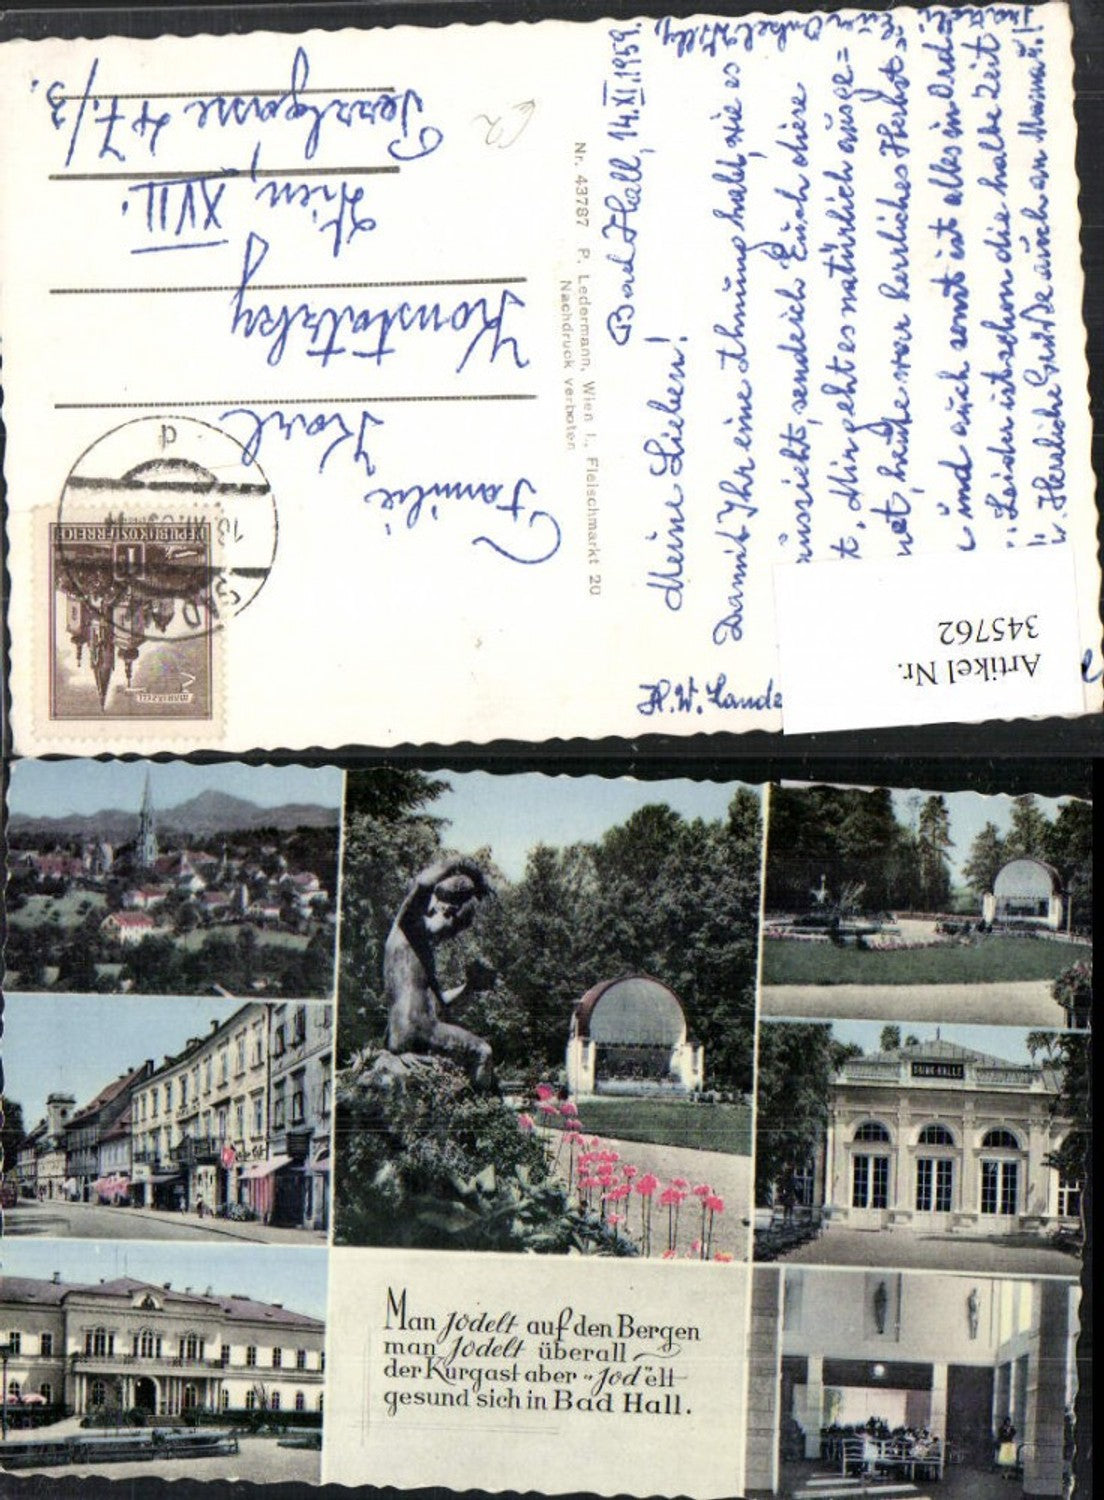 Bad Hall, 14.XI.1959.
Meine Lieben!
Damit Ihr eine Ahnung habt, wie es
aussieht, sende ich Euch diese
t. Mir geht es natürlich ausge=
net, heute war herrliches Herbst=
und auch sonst ist alles in Ord=
Leider ist schon die halbe Zeit
Herzliche Grüße auch an Mama!
Onkel Willy,
Nr. 43787 P. Ledermann, Wien I., Fleischmarkt 20
Nachdruck verboten
Familie
Karl
Wien, XVII.
47/3.
REPUBLIK ÖSTERREICH
1
MARIAZELL
BAD
d
Artikel Nr.
345762
TRINK-HALLE
Man jodelt auf den Bergen
man jodelt überall
der Kurgast aber "Jod"elt
gesund sich in Bad Hall.